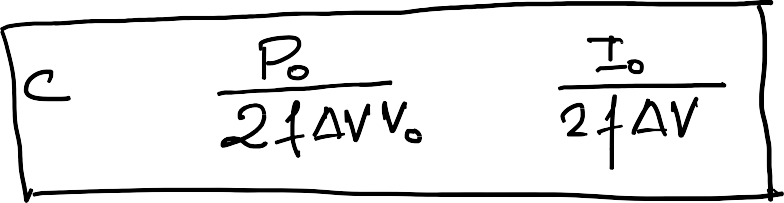 C P₀/(2fΔVV₀) I₀/(2fΔV)